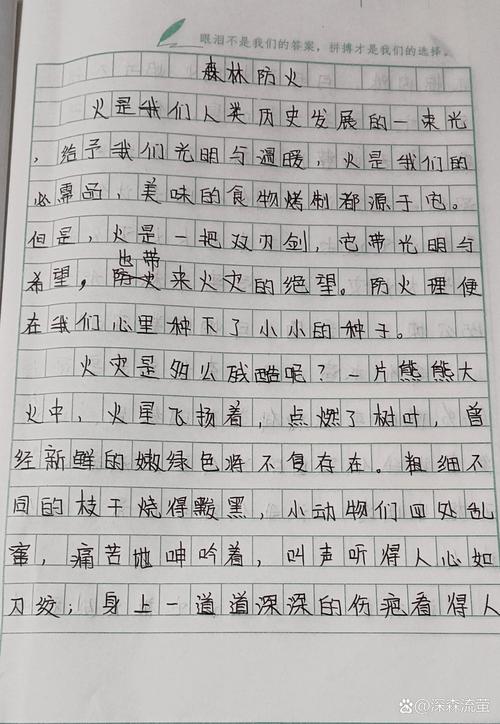 眼泪不是我们的答案，拼搏才是我们的选择。
森林防火
火是我们人类历史发展的一束光
，给予我们光明与温暖，火是我们的
必需品，美味的食物烤制都源于它。
但是，火是一把双刃剑，它带光明与
也带
希望，防火来火灾的绝望。防火理便
在我们心里种下了小小的种子。
火灾是多么残酷呢？一片熊熊大
火中，火星飞扬着，点燃了树叶，曾
经新鲜的嫩绿色将不复存在。粗细不
同的枝干烧得黢黑，小动物们四处乱
窜，痛苦地呻吟着，叫声听得人心如
刀绞；身上一道道深深的伤疤看得人
百家号/深森流萤